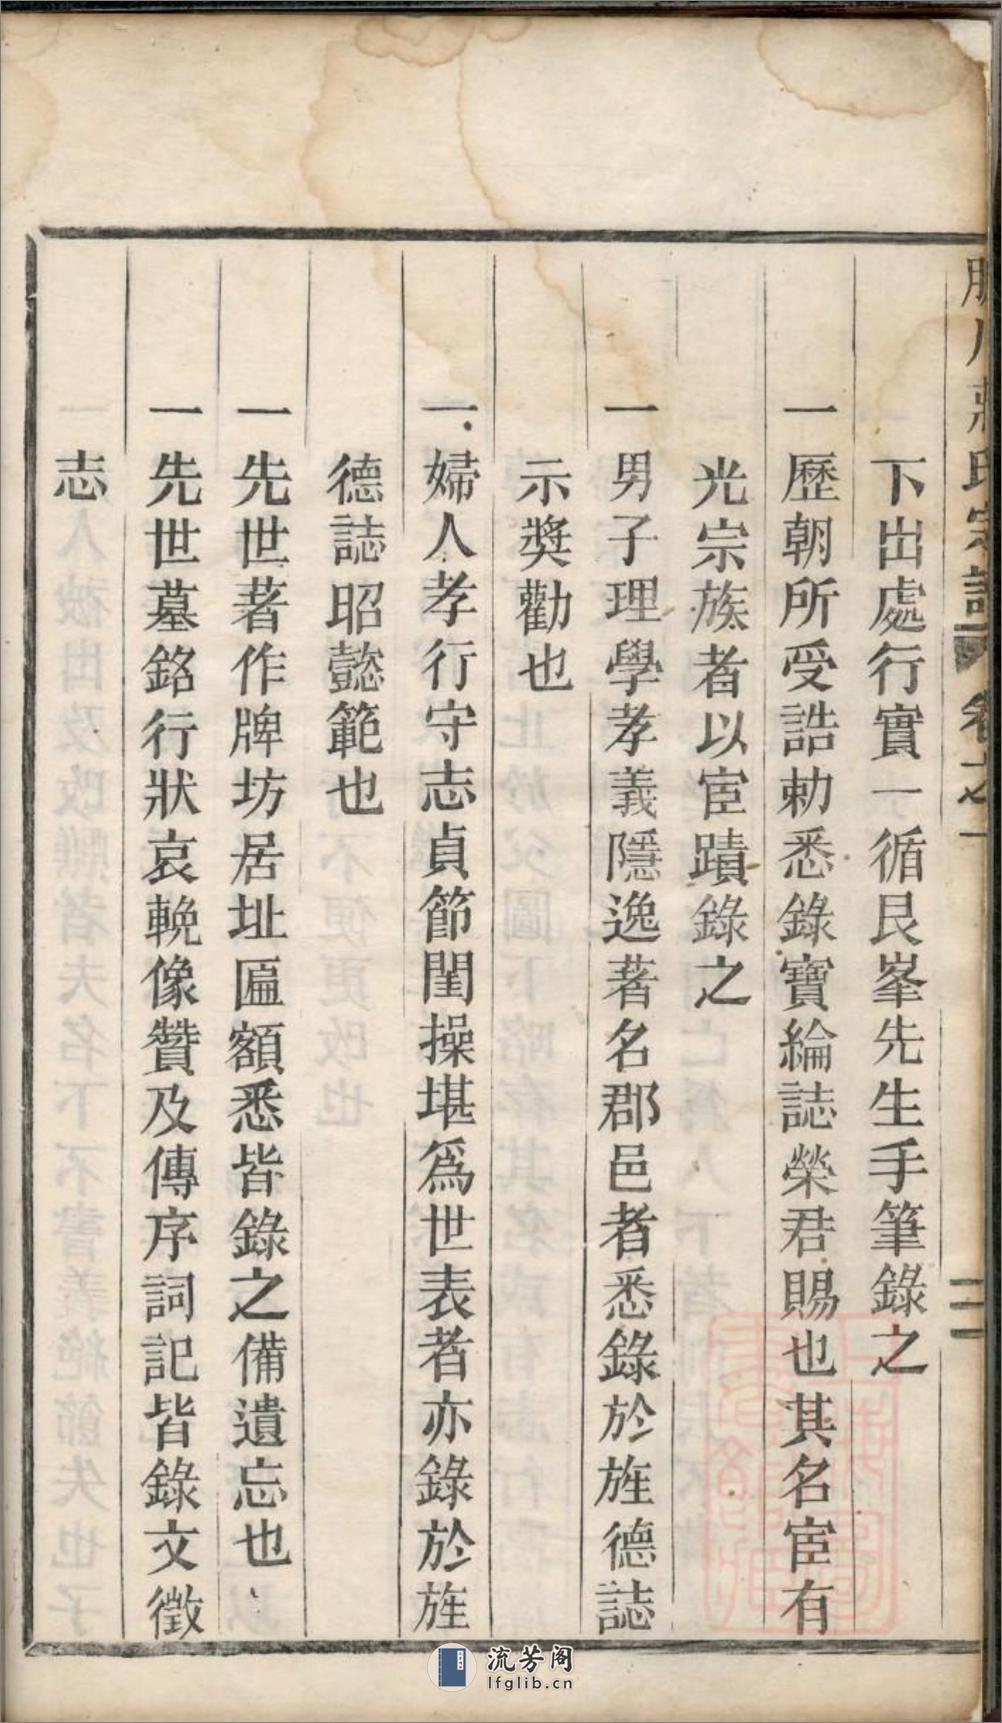 氏宗譜 卷之一 二
下出處行實一循艮峯先生手筆錄之
一歷朝所受誥勅悉錄寶綸誌榮君賜也其名宦有
光宗族者以宦蹟錄之
一男子理學孝義隱逸著名郡邑者悉錄於旌德誌
示奬勸也
一婦人孝行守志貞節閨操堪爲世表者亦錄於旌
德誌昭懿範也
一先世著作牌坊居址匾額悉皆錄之備遺忘也
一先世墓銘行狀哀輓像贊及傳序詞記皆錄文徵
志
流芳阁
lfglib.cn